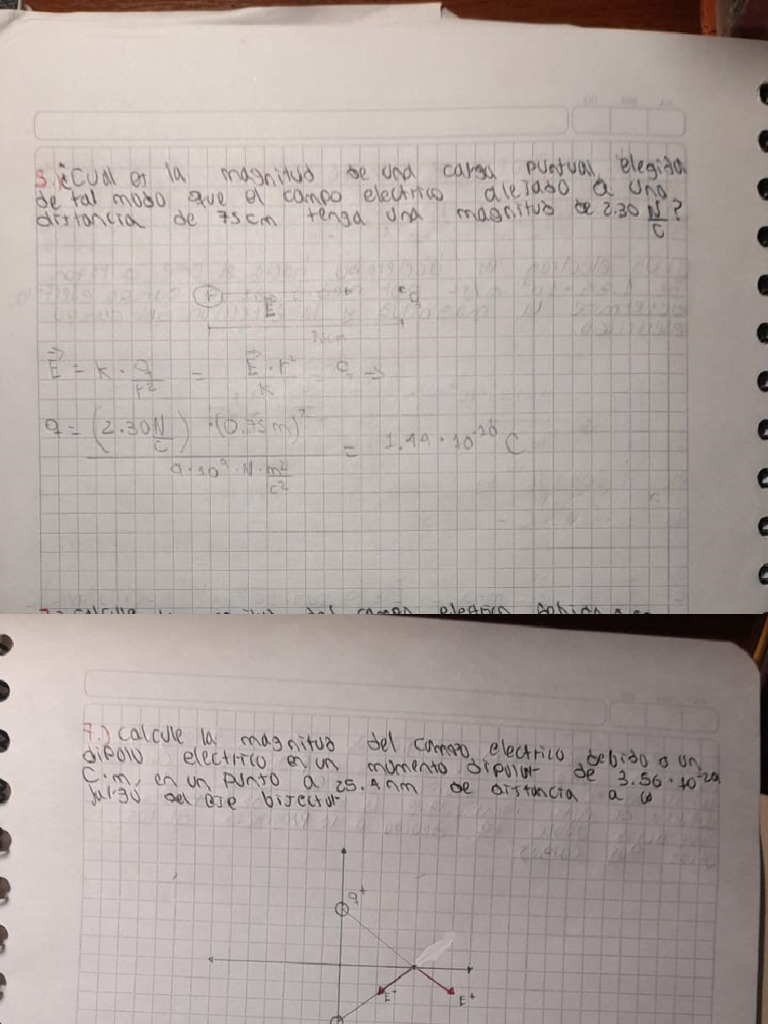 5. ¿Cual es la magnitud de una carga puntual elegida
de tal modo que el campo electrico alejado a una
distancia de 75cm tenga una magnitud de 2.30 N/C?
+ E P
75cm
E = k · q/r² = E · r²/k q →
q = (2.30 N/C) · (0.75m)² / 9·10⁹·N·m²/c² = 1.44 · 10⁻¹⁰ C
7.) calcule la magnitud del campo electrico debido a un
dipolo electrico en un momento dipolar de 3.56 · 10⁻²⁹
C·m, en un punto a 25.4nm de distancia a lo
largo del eje bisector
q⁺
E⁻ E⁺